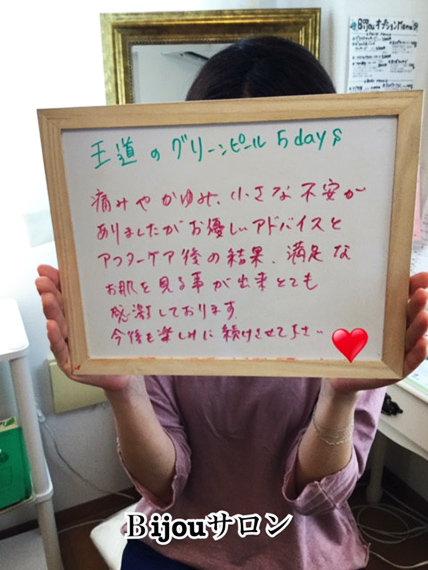 BijouオプションMenu
王道のグリーンピール 5days
痛みやかゆみ、小さな不安が
ありましたがお優しいアドバイスと
アフターケア後の結果、満足な
お肌を見る事が出来とても
感激しております。
今後も楽しみに続けさせて下さい
Bijouサロン